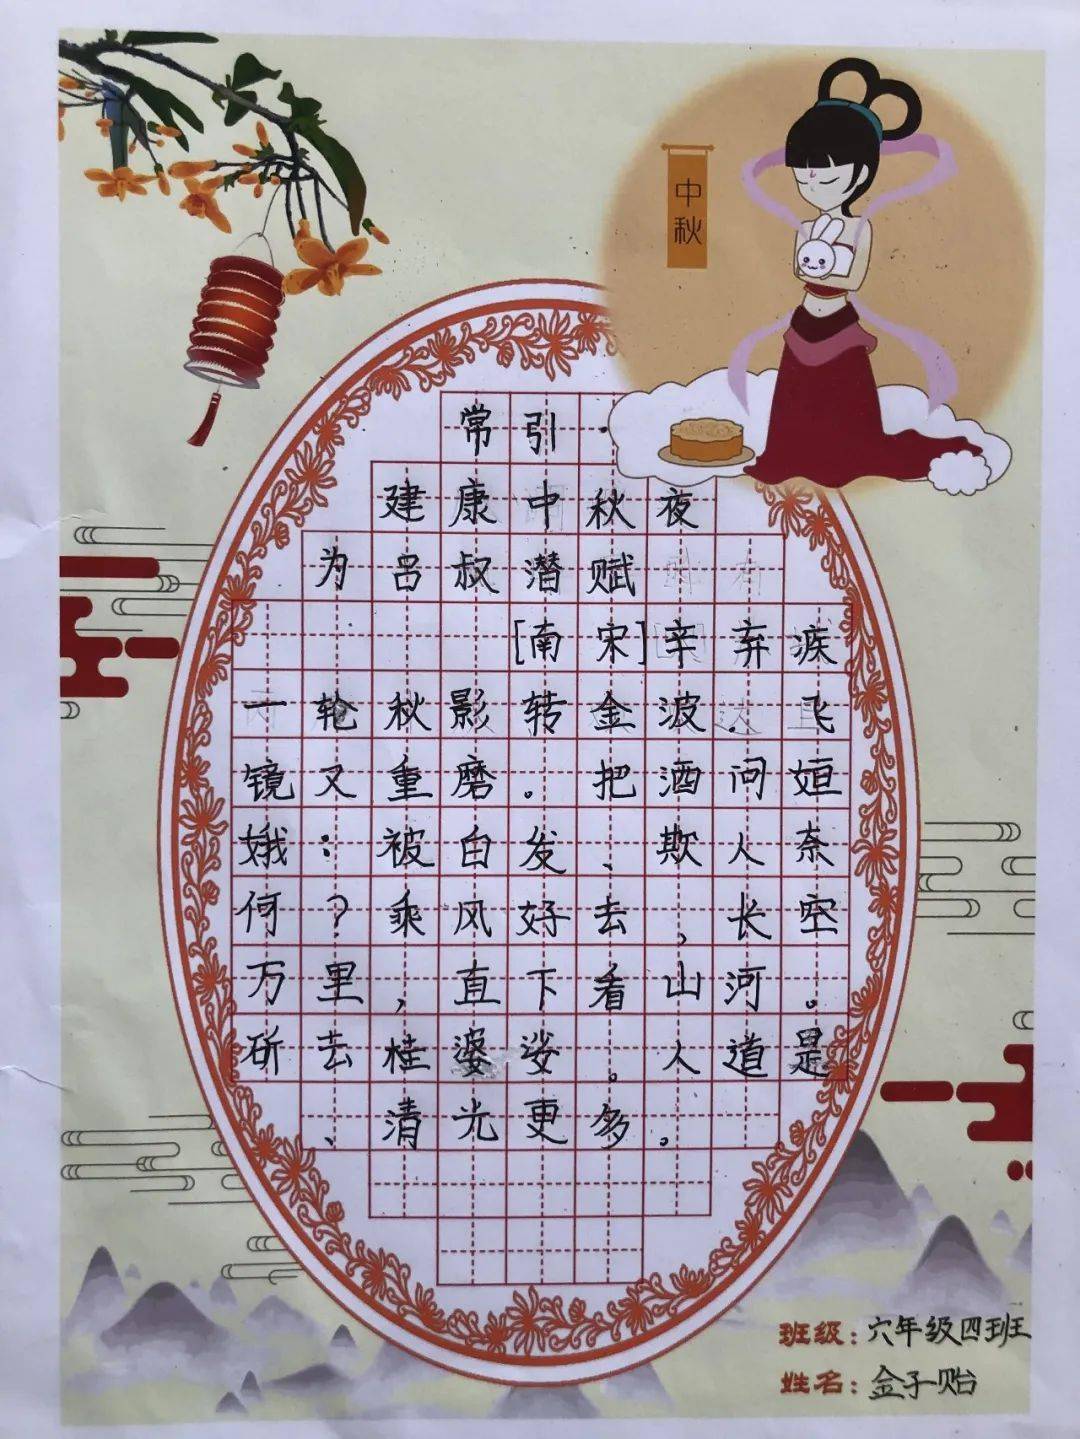 中秋
常引·
建康中秋夜
为吕叔潜赋
[南宋]辛弃疾
一轮秋影转金波.飞
镜又重磨。把酒问姮
娥：被白发、欺人奈
何？乘风好去，长空
万里，直下看山河。
斫去桂婆娑。人道是
、清光更多。
班级：六年级四班
姓名：金子贻